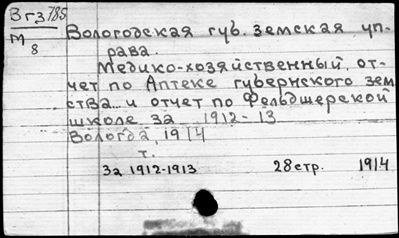 Вг3/785
М
8
Вологодская губ. земская уп-
рава.
Медико-хозяйственный от-
чет по Аптеке губернского зем
ства.. и отчет по Фельдшерской
школе за 1912-13
Вологда, 1914
т.
за 1912-1913 28 стр. 1914